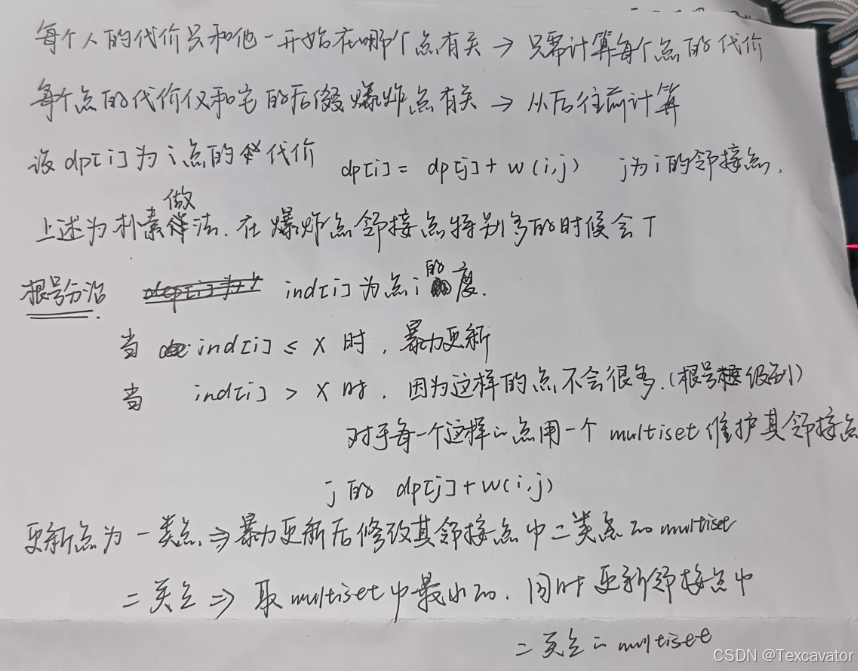 每个人的代价只和他一开始在哪个点有关 → 只需计算每个点的代价
每个点的代价仅和它的后缀爆炸点有关 → 从后往前计算
设 dp[i] 为 i 点的代价 dp[i] = dp[j] + w(i,j) j为i的邻接点.
上述为朴素做法. 在爆炸点邻接点特别多的时候会T
根号分治 ind[i] 为点i的度.
当 ind[i] ≤ X 时, 暴力更新
当 ind[i] > X 时, 因为这样的点不会很多.(根号级别)
对于每一个这样的点用一个 multiset 维护其邻接点
j 的 dp[j]+w(i,j)
更新点为一类点 ⇒ 暴力更新后修改其邻接点中二类点的multiset
二类点 ⇒ 取multiset中最小的. 同时更新邻接点中
二类点的multiset
CSDN @Texcavator